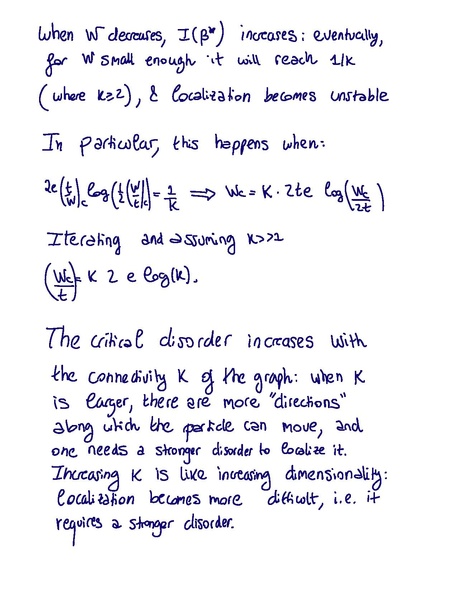 When W decreases, I(β*) increases: eventually,
for W small enough it will reach 1/K
(where K≥2), & localization becomes unstable
In particular, this happens when:
2e (t/W)|c log(1/2 (W/t)|c) = 1/K ⟹ Wc = K · 2te log(Wc/2t)
Iterating and assuming K>>1
(Wc/t) = K 2 e log(K).
The critical disorder increases with
the connectivity K of the graph: when K
is larger, there are more "directions"
along which the particle can move, and
one needs a stronger disorder to localize it.
Increasing K is like increasing dimensionality:
localization becomes more difficult, i.e. it
requires a stronger disorder.